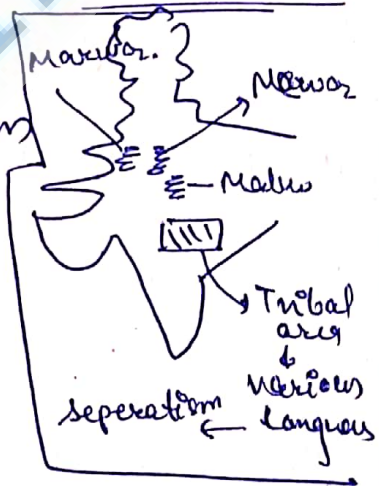 Marwar.
Mewar
Malwa
Tribal
area
various
languas
seperatism